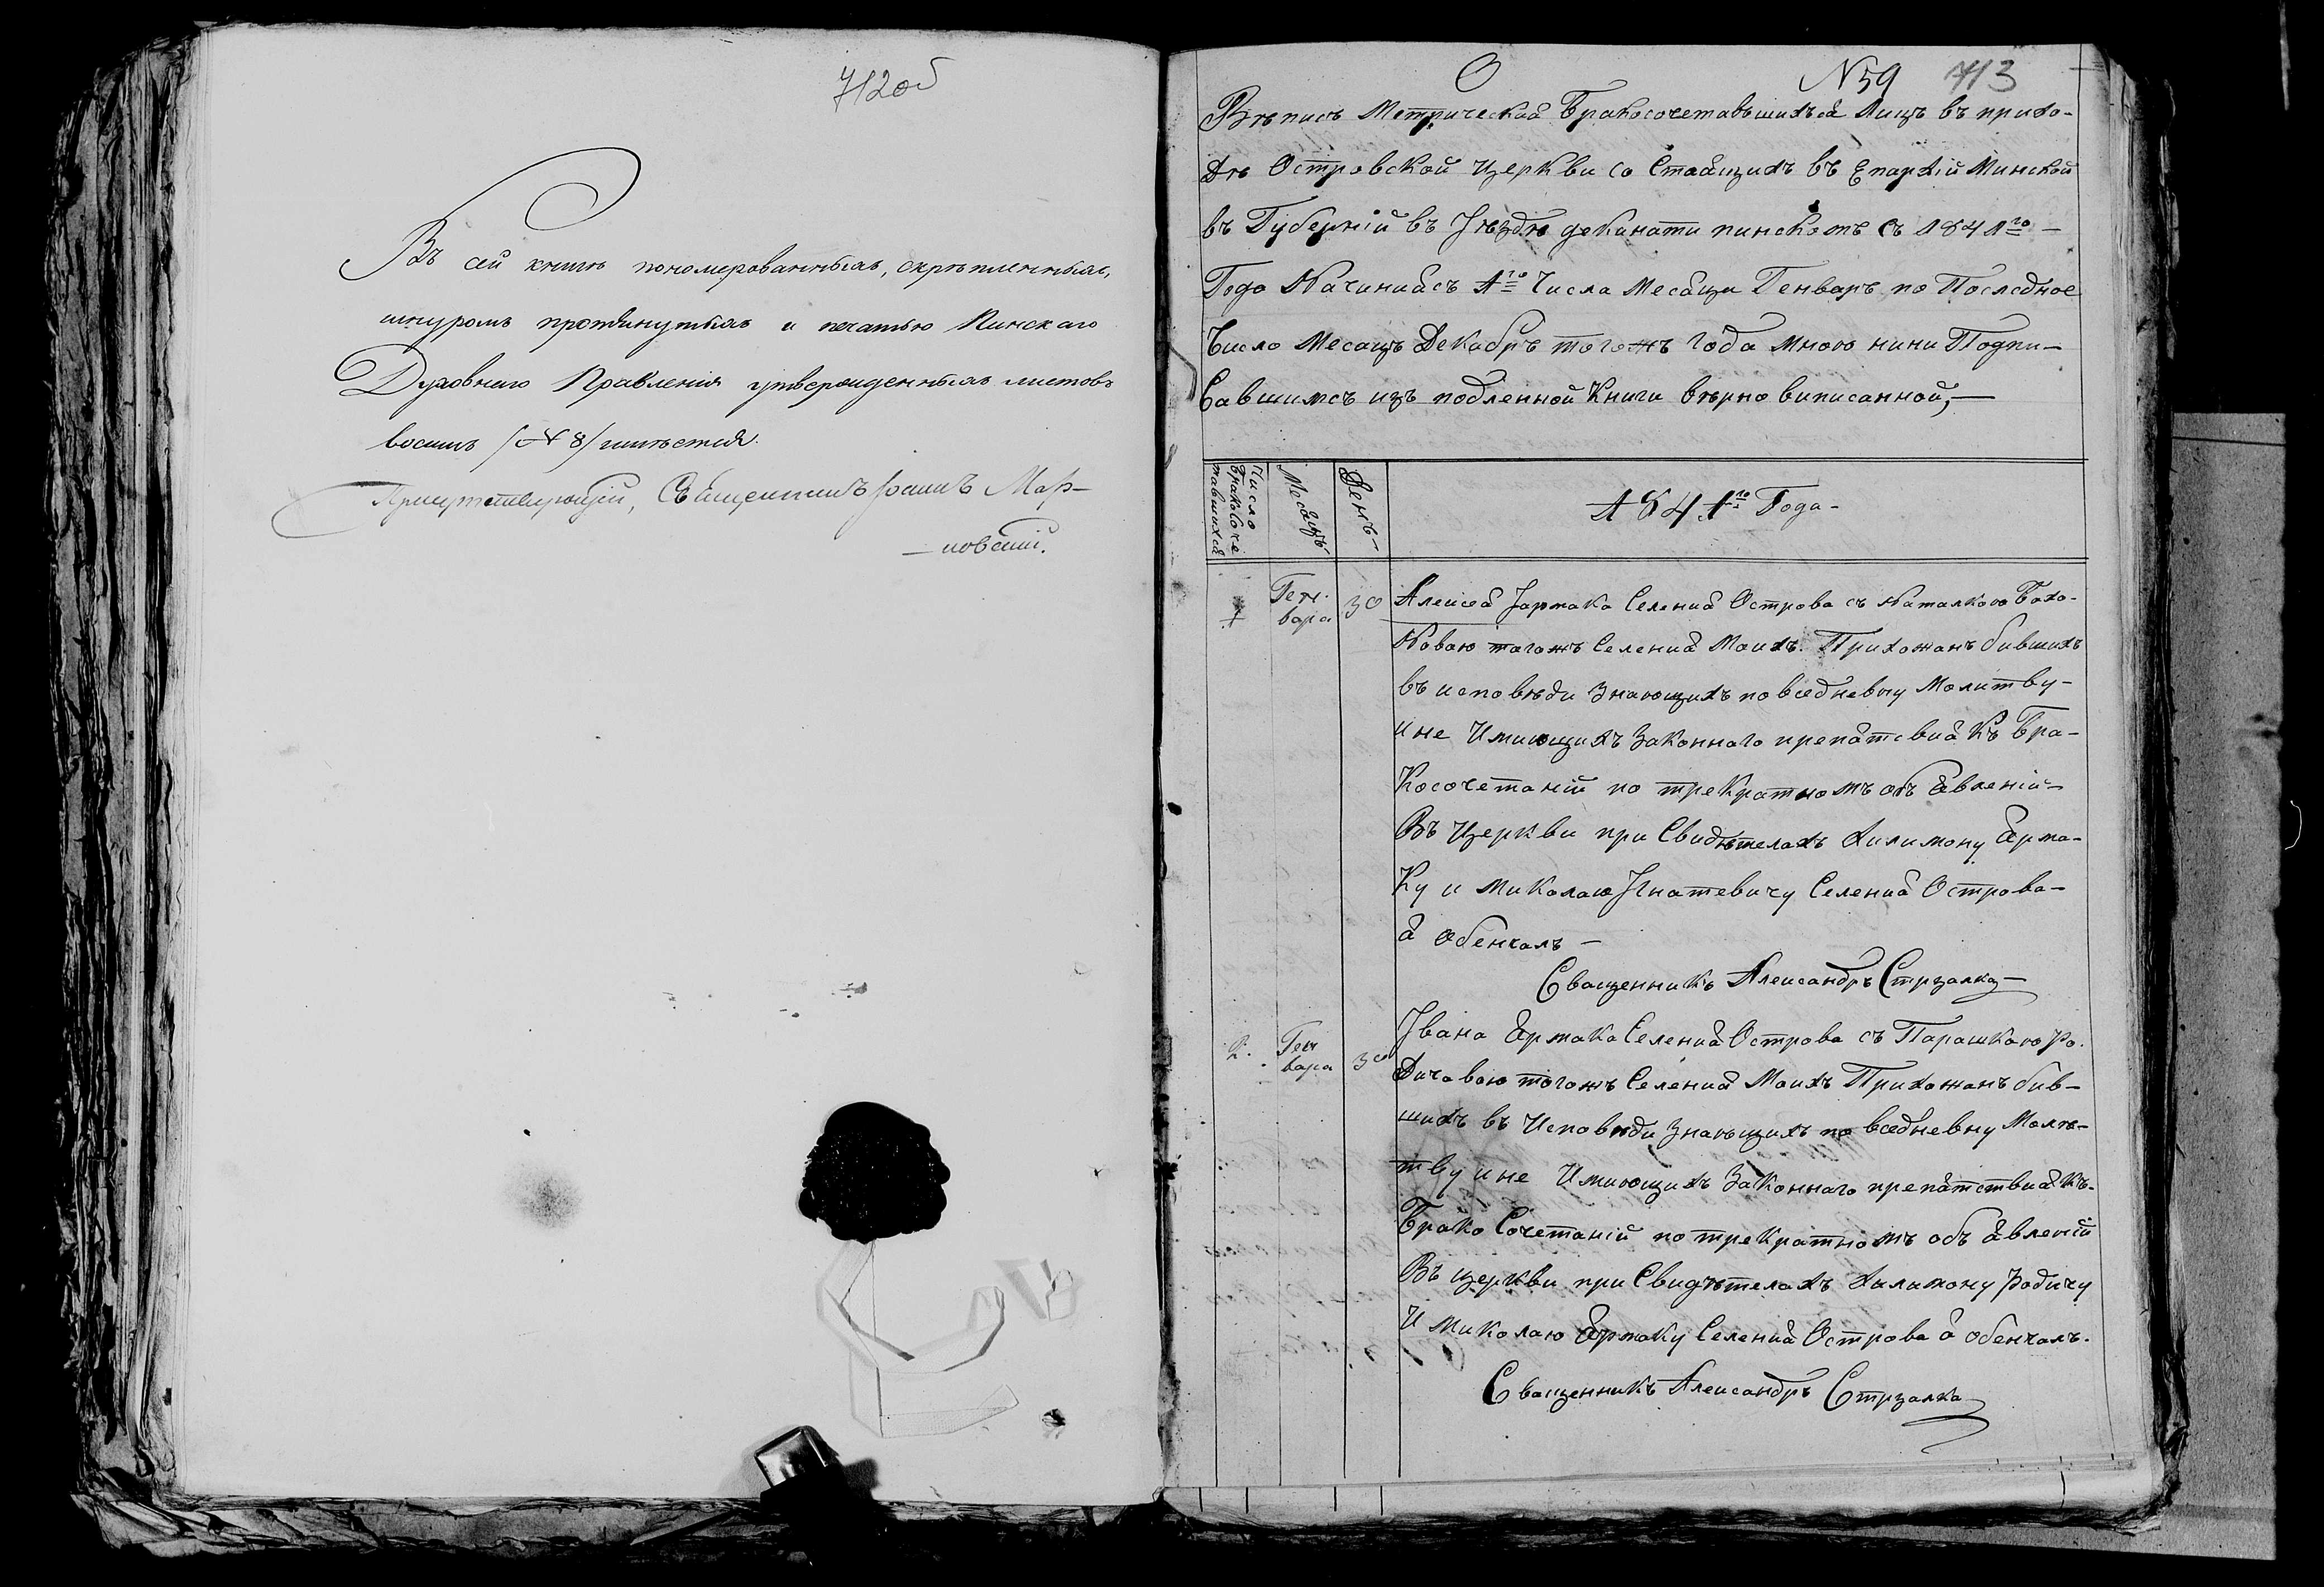 712об
Въ сей книгѣ пономерованныхъ, скрѣпленныхъ,
шнуромъ протянутыхъ и печатью Пинскаго
Духовнаго Правленія утвержденныхъ листовъ
восемь /№ 8/ шнѣстся.
Присутствующій, Священникъ Іоаннъ Мар-
-новскій.
№59 713
Выпись Метрической Бракосочетавшихъся Лицъ въ прихо-
дѣ Островской Церкви состоящихъ въ Епархій Минской
въ Губерній въ Уѣздѣ деканати пинскомъ съ 1841го
Года Начинаясъ 1го Числа Месяца Генваръ по Последное
Число Месяцъ Декабръ тогожъ года мною нини Подпи-
савшимсъ изъ подленной Книги вѣрно виписанной,
Число бракосочетавшихся
Месяцъ
День
1841го Года
1 Генвара 30 Алексея Јармака Селения Острова съ Наталкою Бахо-
новою тогожъ Селения Моихъ Прихожанъ бившихъ
въ исповѣди Знающихъ повседневну Молитву
и не Имиющихъ Законнаго препятсвия къ бра-
косочетаній по трекратномъ объявленій
Въ Церкви при Свидѣтеляхъ Хилимону Ярма-
ку и Миколаю Јгнатевичу Селения Острова
я обенчалъ
Сващенникъ Александръ Стрзалка
2. Генвара 30 Јвана Ярмака Селения Острова съ Парашкою Ро-
дичовою тогожъ Селения Моихъ Прихожанъ бив-
шихъ въ Исповѣди Знающихъ повседневну Моли-
тву и не Имиющихъ Законнаго препятствия къ
Брако Сочетаній по трекратномъ объявленій
Въ церкви при Свидѣтелахъ Халимону Родичу
И Миколаю Ярмаку Селения Острова я обенчалъ.
Сващенникъ Александръ Стрзалка